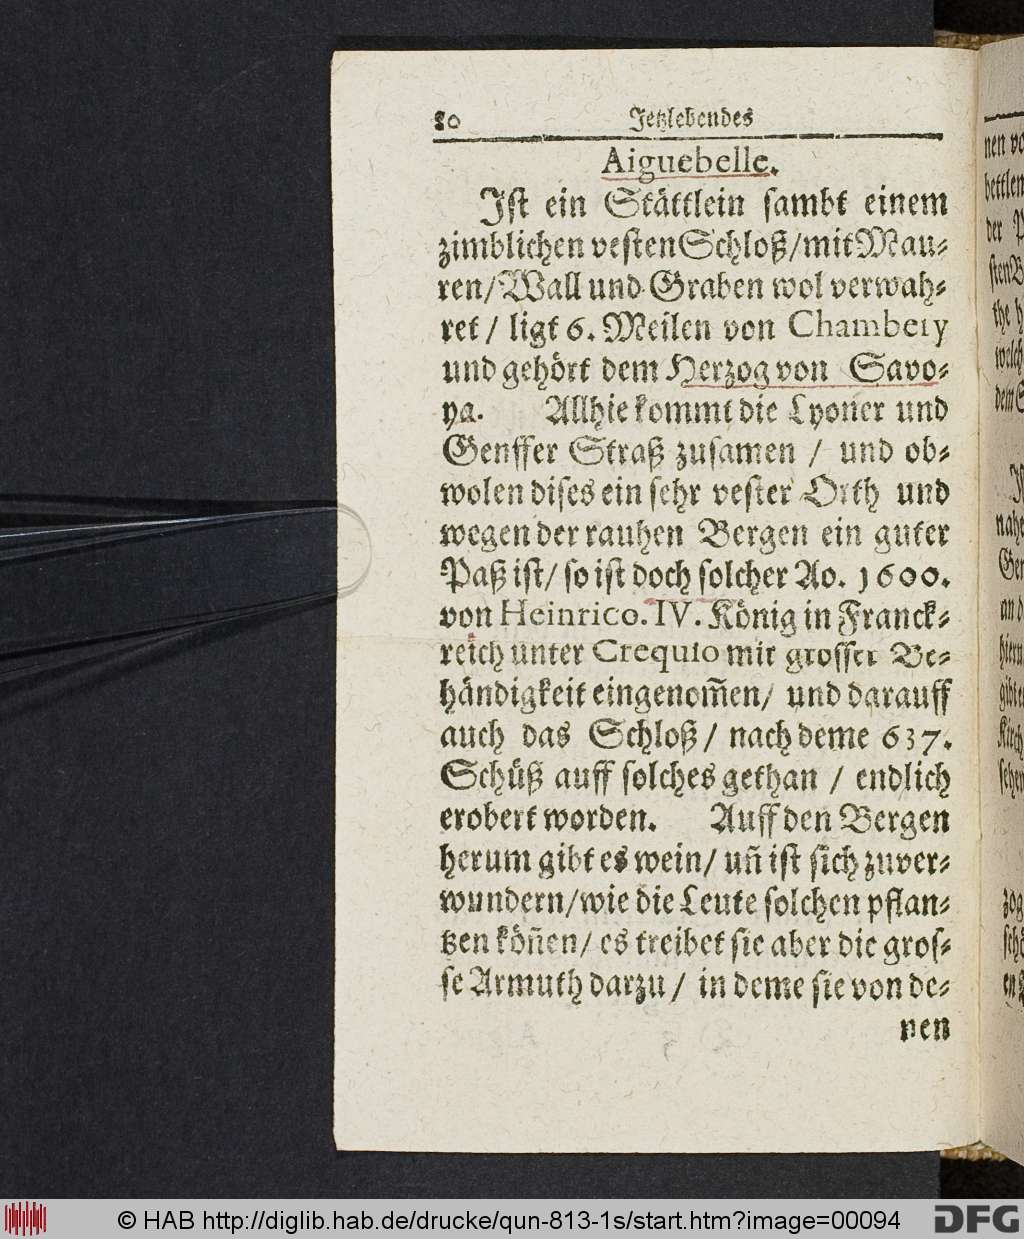 80 Jetzlebendes
Aiguebelle.
Ist ein Stättlein sambt einem
zimblichen vesten Schloß/mit Mau-
ren/Wall und Graben wol verwah-
ret / ligt 6. Meilen von Chambery
und gehört dem Herzog von Savo-
ya. Allhie kommt die Lyoner und
Genffer Straß zusamen / und ob-
wolen dises ein sehr vester Orth und
wegen der rauhen Bergen ein guter
Paß ist/ so ist doch solcher Ao. 1600.
von Heinrico. IV. König in Franck-
reich unter Crequio mit grosser Be-
händigkeit eingenom̃en/ und darauff
auch das Schloß / nach deme 637.
Schüß auff solches gethan / endlich
erobert worden. Auff den Bergen
herum gibt es wein/ uñ ist sich zuver-
wundern/wie die Leute solchen pflan-
tzen köñen/ es treibet sie aber die gros-
se Armuth darzu / in deme sie von de-
nen
nen
bettlen
der
the
welch
dem
nahe
an
gibt
Kirch
sehen
zog
© HAB http://diglib.hab.de/drucke/qun-813-1s/start.htm?image=00094
DFG